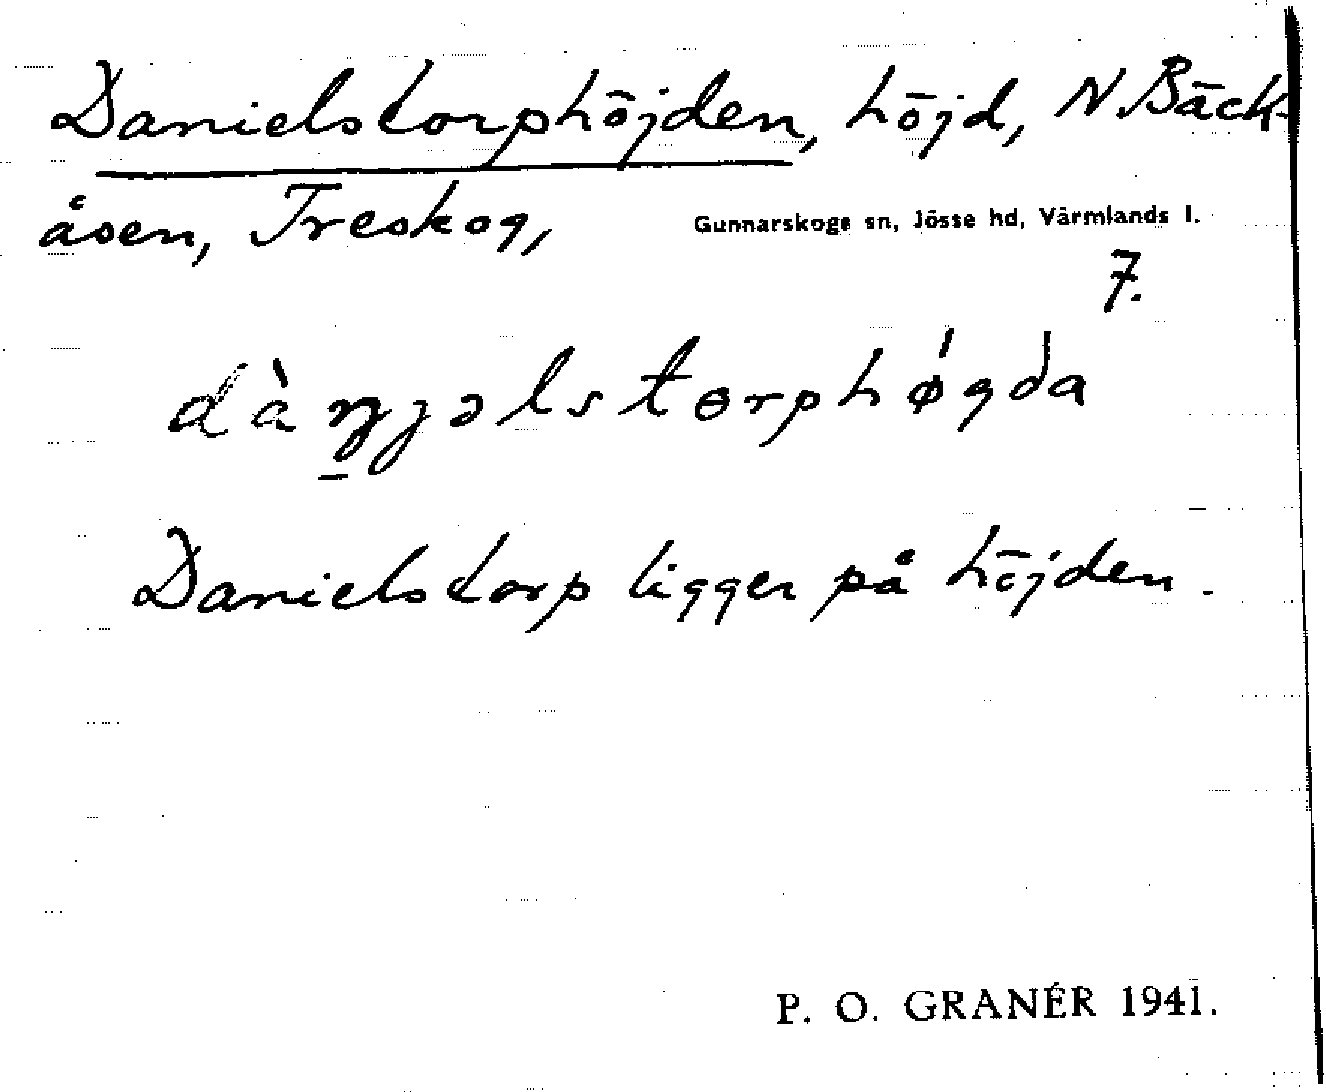 Danielstorphöjden, höjd, N. Bäck-
åsen, Treskog,
Gunnarskogs sn, Jösse hd, Värmlands l.
7.
dàŋjəlstɵrphǿgda
Danielstorp ligger på höjden.
P. O. GRANÉR 1941.